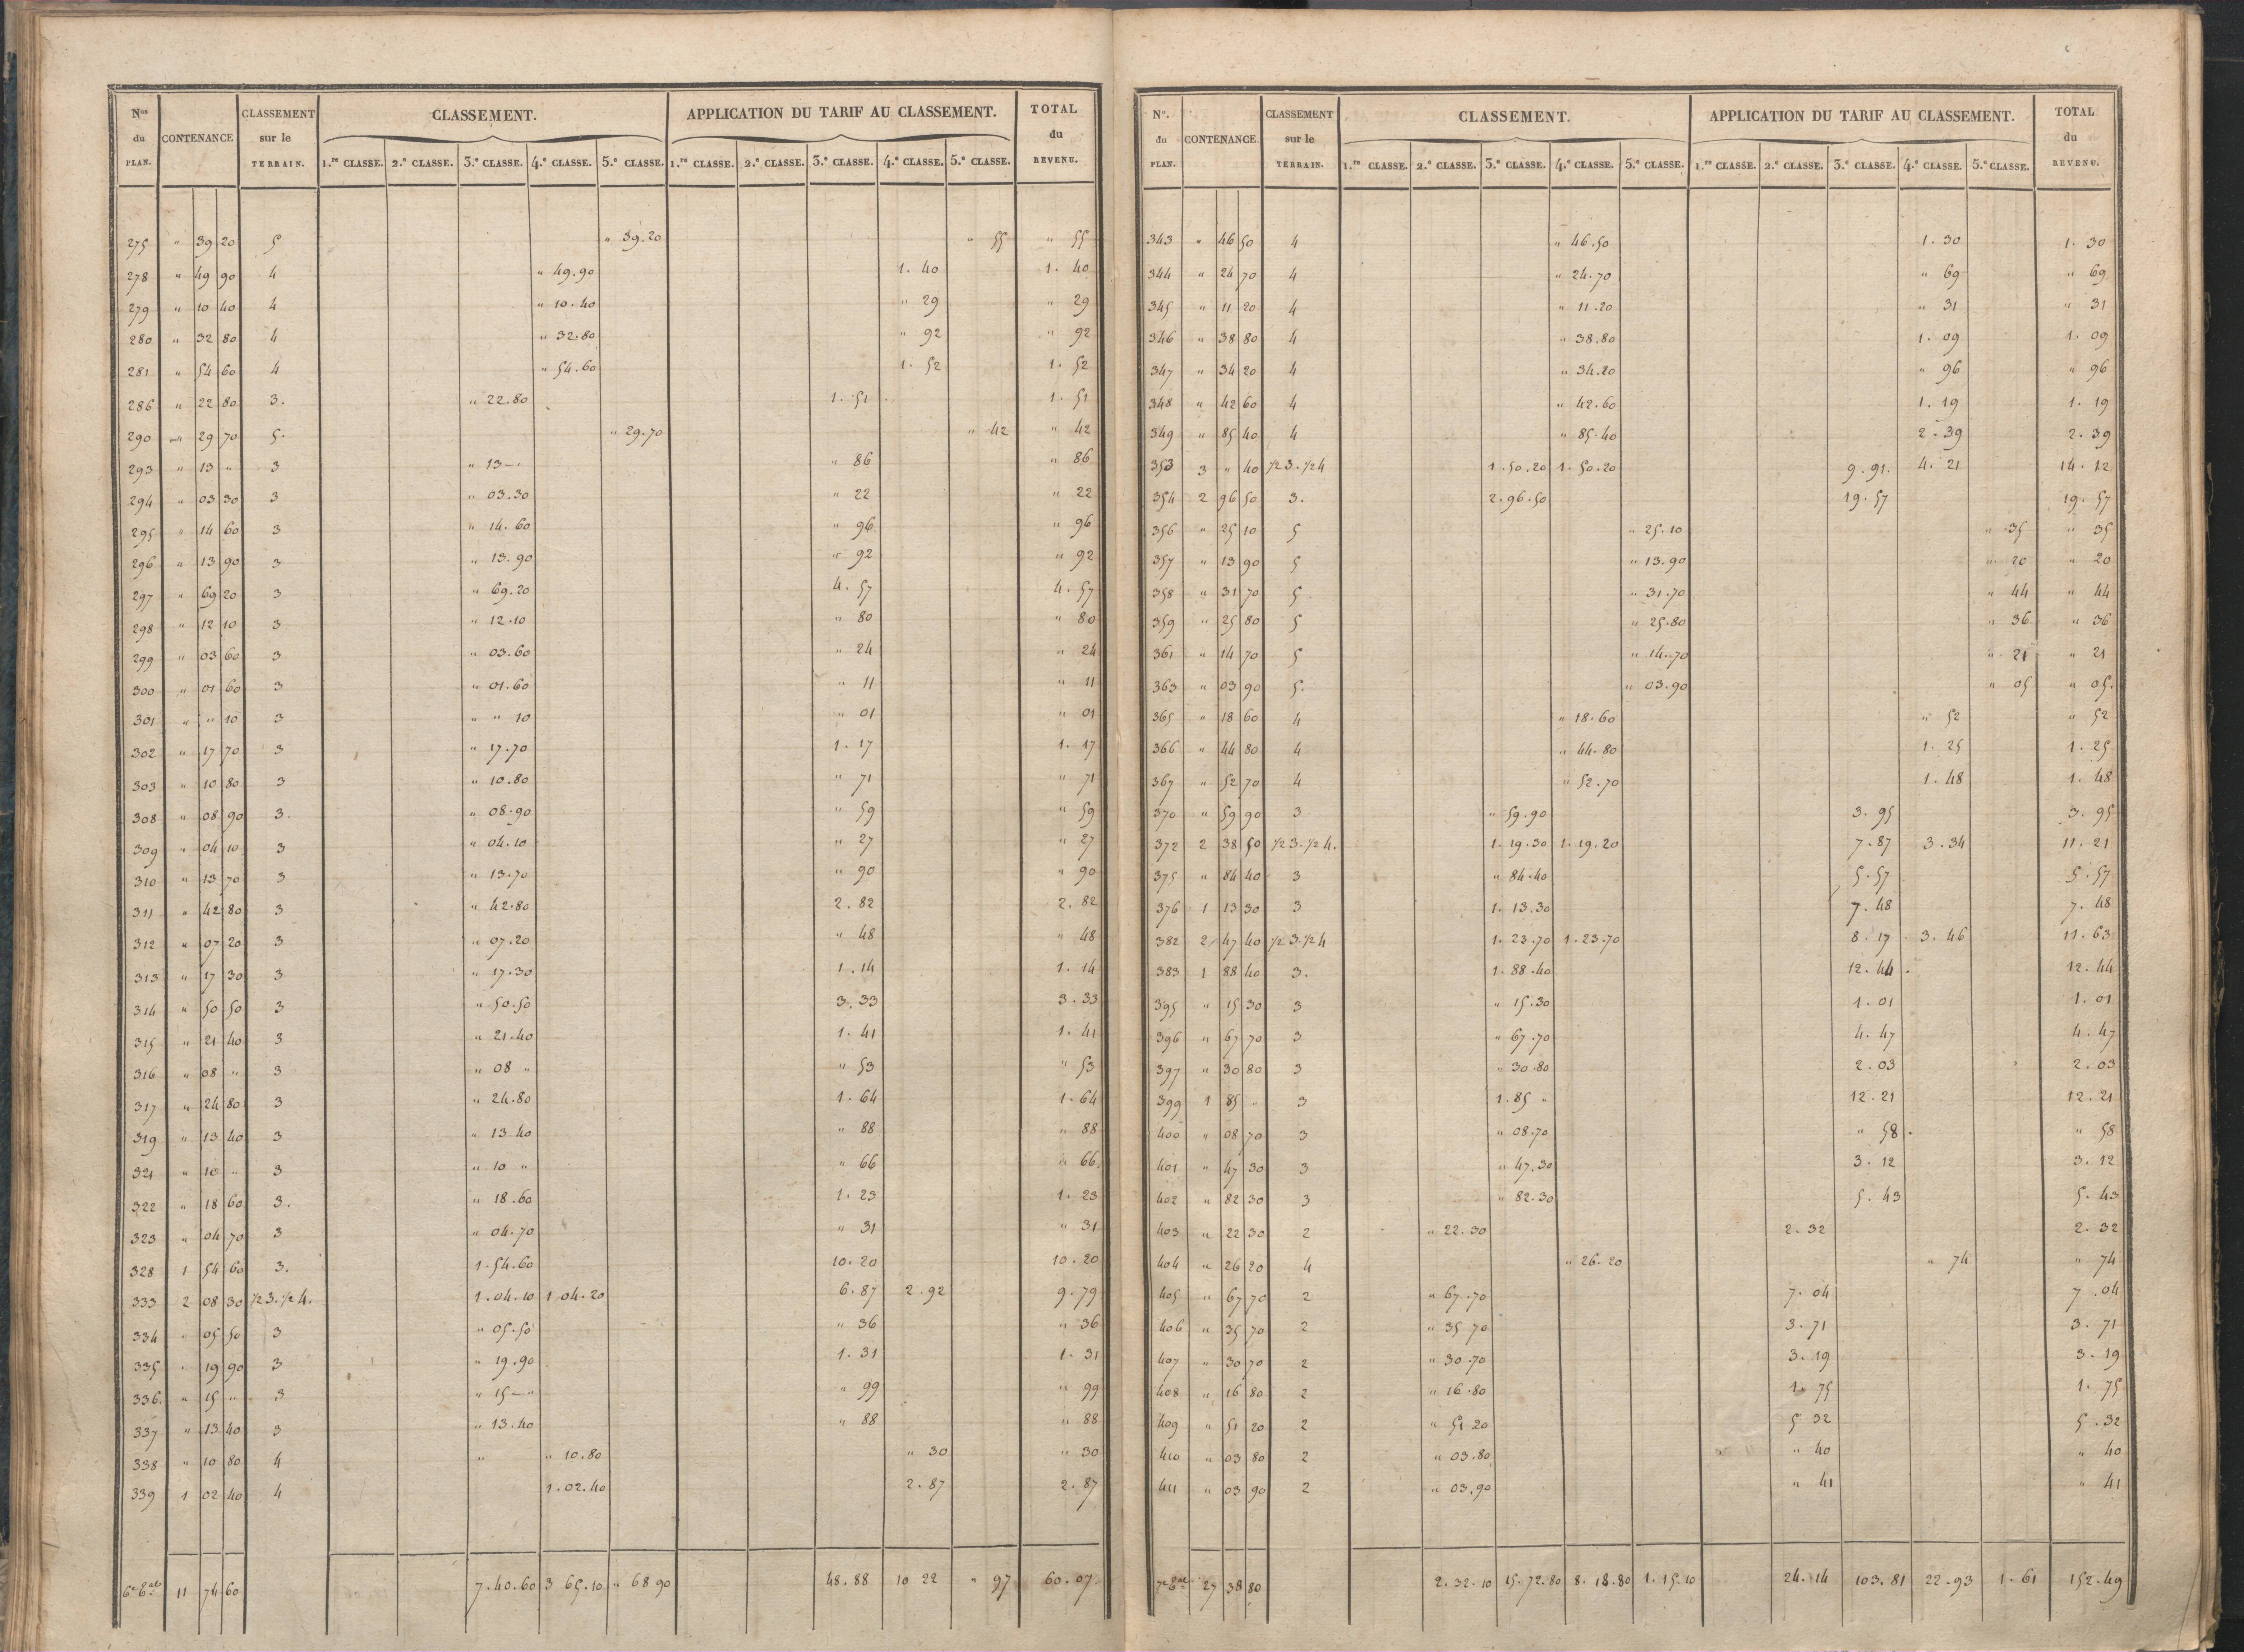 Nos du PLAN. CONTENANCE CLASSEMENT sur le TERRAIN. CLASSEMENT. APPLICATION DU TARIF AU CLASSEMENT. TOTAL du REVENU.
1.re CLASSE. 2.e CLASSE. 3.e CLASSE. 4.e CLASSE. 5.e CLASSE. 1.re CLASSE. 2.e CLASSE. 3.e CLASSE. 4.e CLASSE. 5.e CLASSE.
275 " 39 20 5 " 39.20 " 55 " 55
278 " 49 90 4 " 49.90 1. 40 1. 40
279 " 10 40 4 " 10.40 " 29 " 29
280 " 32 80 4 " 32.80 " 92 " 92
281 " 54 60 4 " 54.60 1. 52 1. 52
286 " 22 80 3. " 22.80 1. 51 1. 51
290 " 29 70 5. " 29.70 " 42 " 42
293 " 13 " 3 " 13 — " " 86 " 86
294 " 03 30 3 " 03.30 " 22 " 22
295 " 14 60 3 " 14.60 " 96 " 96
296 " 13 90 3 " 13.90 " 92 " 92
297 " 69 20 3 " 69.20 4. 57 4. 57
298 " 12 10 3 " 12.10 " 80 " 80
299 " 03 60 3 " 03.60 " 24 " 24
300 " 01 60 3 " 01.60 " 11 " 11
301 " " 10 3 " " 10 " 01 " 01
302 " 17 70 3 " 17.70 1. 17 1. 17
303 " 10 80 3 " 10.80 " 71 " 71
308 " 08 90 3. " 08.90 " 59 " 59
309 " 04 10 3 " 04.10 " 27 " 27
310 " 13 70 3 " 13.70 " 90 " 90
311 " 42 80 3 " 42.80 2. 82 2. 82
312 " 07 20 3 " 07.20 " 48 " 48
313 " 17 30 3 " 17.30 1. 14 1. 14
314 " 50 50 3 " 50.50 3. 33 3. 33
315 " 21 40 3 " 21.40 1. 41 1. 41
316 " 08 " 3 " 08 " " 53 " 53
317 " 24 80 3 " 24.80 1. 64 1. 64
319 " 13 40 3 " 13.40 " 88 " 88
321 " 10 " 3 " 10 " " 66 " 66
322 " 18 60 3. " 18.60 1. 23 1. 23
323 " 04 70 3 " 04.70 " 31 " 31
328 1 54 60 3. 1.54.60 10. 20 10. 20
333 2 08 30 1/2 3. 1/2 4. 1.04.10 1.04.20 6. 87 2. 92 9. 79
334 " 05 50 3 " 05.50 " 36 " 36
335 " 19 90 3 " 19.90 1. 31 1. 31
336. " 15 " 3 " 15 — " " 99 " 99
337 " 13 40 3 " 13.40 " 88 " 88
338 " 10 80 4 " " 10.80 " 30 " 30
339 1 02 40 4 1.02.40 2. 87 2. 87
11 74 60 7.40.60 3 65.10 " 68 90 48. 88 10 22 " 97 60. 07
No. du PLAN. CONTENANCE. CLASSEMENT sur le TERRAIN. CLASSEMENT. APPLICATION DU TARIF AU CLASSEMENT. TOTAL du REVENU.
1.re CLASSE. 2.e CLASSE. 3.e CLASSE. 4.e CLASSE. 5.e CLASSE. 1.re CLASSE. 2.e CLASSE. 3.e CLASSE. 4.e CLASSE. 5.e CLASSE.
343 " 46 50 4 " 46.50 1. 30 1. 30
344 " 24 70 4 " 24.70 " 69 " 69
345 " 11 20 4 " 11.20 " 31 " 31
346 " 38 80 4 " 38.80 1. 09 1. 09
347 " 34 20 4 " 34.20 " 96 " 96
348 " 42 60 4 " 42.60 1. 19 1. 19
349 " 85 40 4 " 85.40 2. 39 2. 39
353 3 " 40 1/2 3. 1/2 4 1.50.20 1.50.20 9. 91. 4. 21 14. 12
354 2 96 50 3. 2.96.50 19. 57 19. 57
356 " 25 10 5 " 25.10 " 35 " 35
357 " 13 90 5 " 13.90 " 20 " 20
358 " 31 70 5 " 31.70 " 44 " 44
359 " 25 80 5 " 25.80 " 36 " 36
361 " 14 70 5 " 14.70 " 21 " 21
363 " 03 90 5. " 03.90 " 05 " 05.
365 " 18 60 4 " 18.60 " 52 " 52
366 " 44 80 4 " 44.80 1. 25 1. 25
367 " 52 70 4 " 52.70 1. 48 1. 48
370 " 59 90 3 " 59.90 3. 95 3. 95
372 2 38 50 1/2 3. 1/2 4. 1.19.30 1.19.20 7. 87 3. 34 11. 21
375 " 84 40 3 " 84.40 5. 57 5. 57
376 1 13 30 3 1.13.30 7. 48 7. 48
382 2 47 40 1/2 3. 1/2 4 1.23.70 1.23.70 8. 17 3. 46 11. 63
383 1 88 40 3. 1.88.40 12. 44 12. 44
395 " 15 30 3 " 15.30 1. 01 1. 01
396 " 67 70 3 " 67.70 4. 47 4. 47
397 " 30 80 3 " 30.80 2. 03 2. 03
399 1 85 " 3 1.85 " 12. 21 12. 21
400 " 08 70 3 " 08.70 " 58 " 58
401 " 47 30 3 " 47.30 3. 12 3. 12
402 " 82 30 3 " 82.30 5. 43 5. 43
403 " 22 30 2 " 22.30 2. 32 2. 32
404 " 26 20 4 " 26.20 " 74 " 74
405 " 67 70 2 " 67.70 7. 04 7. 04
406 " 35 70 2 " 35 70 3. 71 3. 71
407 " 30 70 2 " 30.70 3. 19 3. 19
408 " 16 80 2 " 16.80 1. 75 1. 75
409 " 51 20 2 " 51 20 5 32 5. 32
410 " 03 80 2 " 03.80 " 40 " 40
411 " 03 90 2 " 03.90 " 41 " 41
27 38 80 2.32.10 15.72.80 8.18.80 1.15.10 24. 14 103. 81 22. 93 1. 61 152. 49